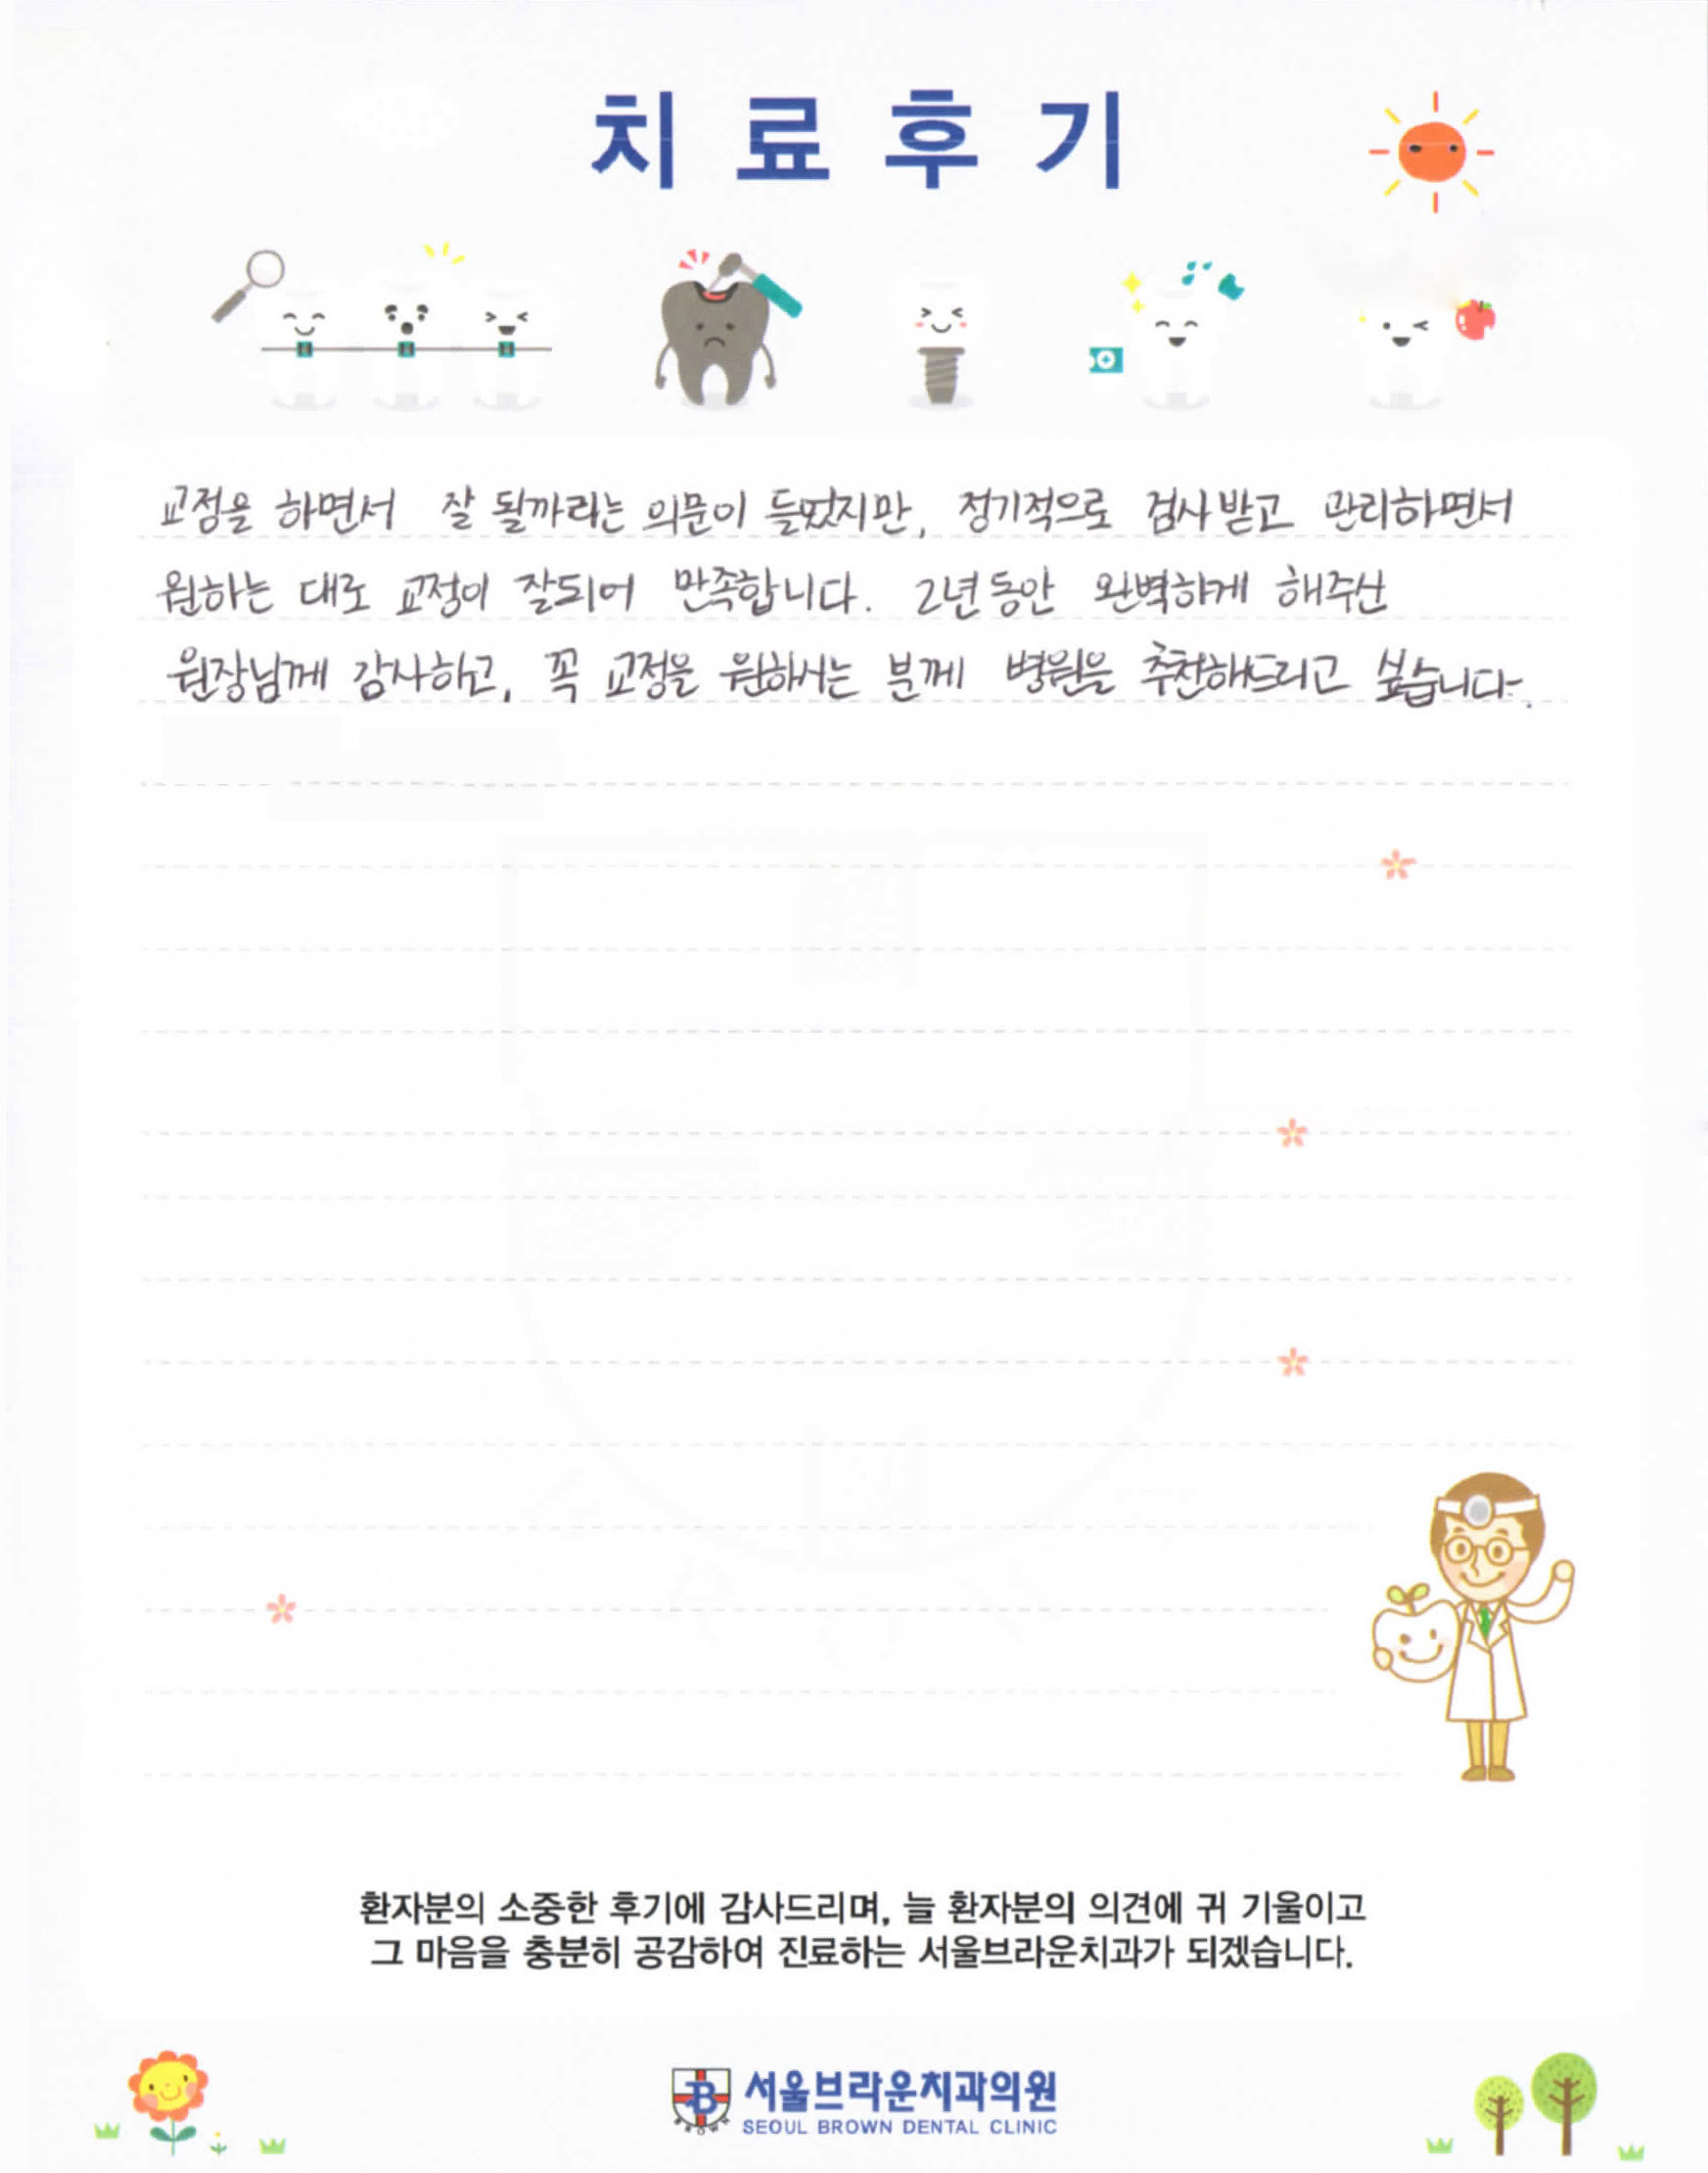 치료후기
교정을 하면서 잘 될까라는 의문이 들었지만, 정기적으로 검사 받고 관리하면서
원하는 대로 교정이 잘되어 만족합니다. 2년 동안 완벽하게 해주산
원장님께 감사하고, 꼭 교정을 원하시는 분께 병원을 추천해드리고 싶습니다.
환자분의 소중한 후기에 감사드리며, 늘 환자분의 의견에 귀 기울이고
그 마음을 충분히 공감하여 진료하는 서울브라운치과가 되겠습니다.
B
BROWN
서울브라운치과의원
SEOUL BROWN DENTAL CLINIC